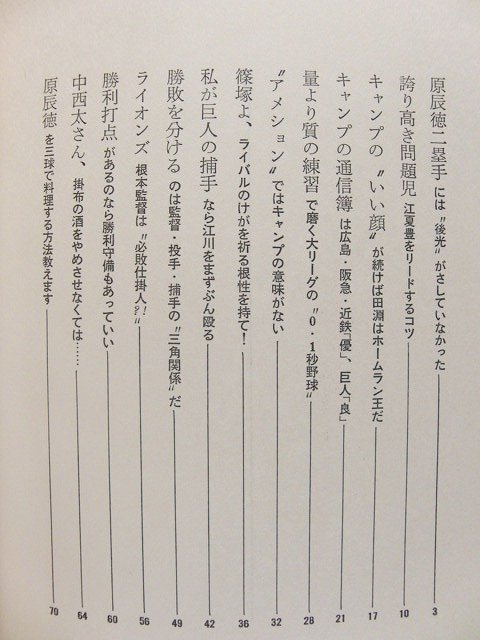 原辰徳二塁手には〝後光〟がさしていなかった 3
誇り高き問題児 江夏豊をリードするコツ 10
キャンプの〝いい顔〟が続けば田淵はホームラン王だ 17
キャンプの通信簿は広島・阪急・近鉄「優」、巨人「良」 21
量より質の練習で磨く大リーグの〝0・1秒野球〟 28
〝アメション〟ではキャンプの意味がない 32
篠塚よ、ライバルのけがを祈る根性を持て! 36
私が巨人の捕手なら江川をまずぶん殴る 42
勝敗を分けるのは監督・投手・捕手の〝三角関係〟だ 49
ライオンズ 根本監督は〝必敗仕掛人?!〟 56
勝利打点があるのなら勝利守備もあっていい 60
中西太さん、掛布の酒をやめさせなくては…… 64
原辰徳を三球で料理する方法教えます 70